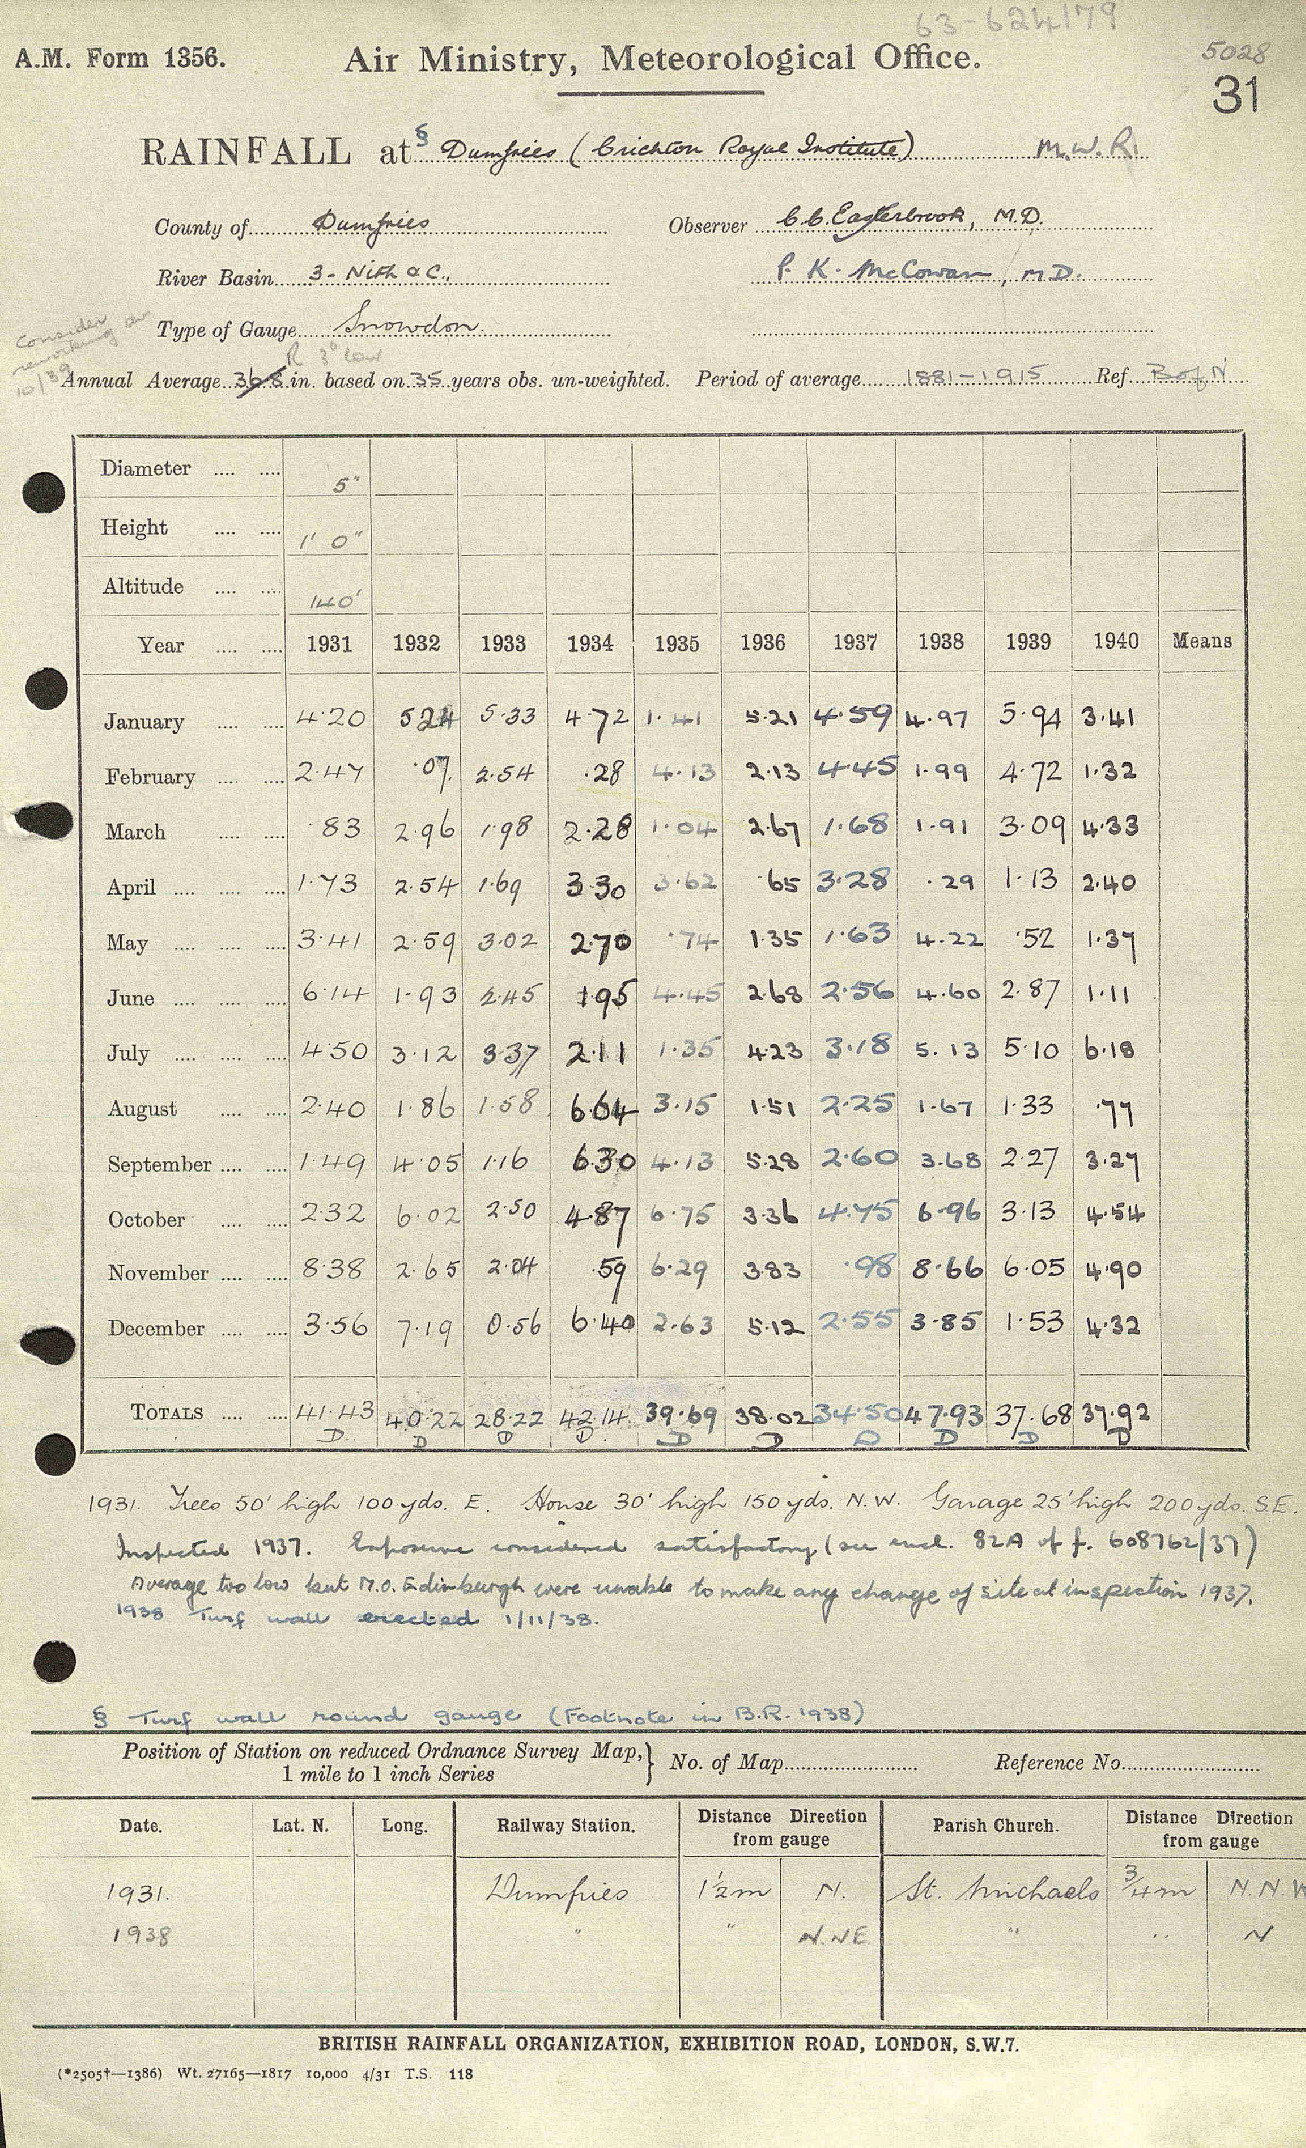 63-624179
A.M. Form 1356.
Air Ministry, Meteorological Office.
5028
31
RAINFALL at § Dumfries (Crichton Royal Institute) M.W.R.
County of Dumfries Observer C.C. Easterbrook, M.D.
River Basin 3 - Nith &c. P. K. McCowan, M.D.
Type of Gauge Snowdon
Consider reworking av 10/39
R 3" low
Annual Average 36.8 in. based on 35 years obs. un-weighted. Period of average 1881-1915 Ref. B of N
Diameter 5"
Height 1' 0"
Altitude 140'
Year 1931 1932 1933 1934 1935 1936 1937 1938 1939 1940 Means
January 4.20 5.24 5.33 4.72 1.41 5.21 4.59 4.97 5.94 3.41
February 2.47 .07 2.54 .28 4.13 2.13 4.45 1.99 4.72 1.32
March .83 2.96 1.98 2.28 1.04 2.67 1.68 1.91 3.09 4.33
April 1.73 2.54 1.69 3.30 3.62 .65 3.28 .29 1.13 2.40
May 3.41 2.59 3.02 2.70 .74 1.35 1.63 4.22 .52 1.37
June 6.14 1.93 2.45 1.95 4.45 2.68 2.56 4.60 2.87 1.11
July 4.50 3.12 3.37 2.11 1.35 4.23 3.18 5.13 5.10 6.18
August 2.40 1.86 1.58 6.64 3.15 1.51 2.25 1.67 1.33 .77
September 1.49 4.05 1.16 6.30 4.13 5.28 2.60 3.68 2.27 3.27
October 2.32 6.02 2.50 4.87 6.75 3.36 4.75 6.96 3.13 4.54
November 8.38 2.65 2.04 .59 6.29 3.83 .98 8.66 6.05 4.90
December 3.56 7.19 0.56 6.40 2.63 5.12 2.55 3.85 1.53 4.32
TOTALS 41.43 40.22 28.22 42.14 39.69 38.02 34.50 47.93 37.68 37.92
D D D D D D D D D D
1931. Trees 50' high 100 yds. E. House 30' high 150 yds. N.W. Garage 25' high 200 yds. S.E.
Inspected 1937. Exposure considered satisfactory (see encl. 82A of f. 608762/37)
Average too low but M.O. Edinburgh were unable to make any change of site at inspection 1937.
1938 Turf wall erected 1/11/38.
§ Turf wall round gauge (Footnote in B.R. 1938)
Position of Station on reduced Ordnance Survey Map, 1 mile to 1 inch Series } No. of Map Reference No.
Date. Lat. N. Long. Railway Station. Distance Direction from gauge Parish Church. Distance Direction from gauge
1931. Dumfries 1½m N. St. Michaels ¾m N.N.W
1938 " " N.NE " " N
BRITISH RAINFALL ORGANIZATION, EXHIBITION ROAD, LONDON, S.W.7.
(*2505†—1386) Wt. 27165—1817 10,000 4/31 T.S. 118